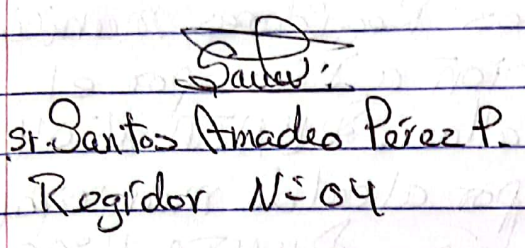 Sr. Santos Amadeo Pérez P.
Regidor Nº 04